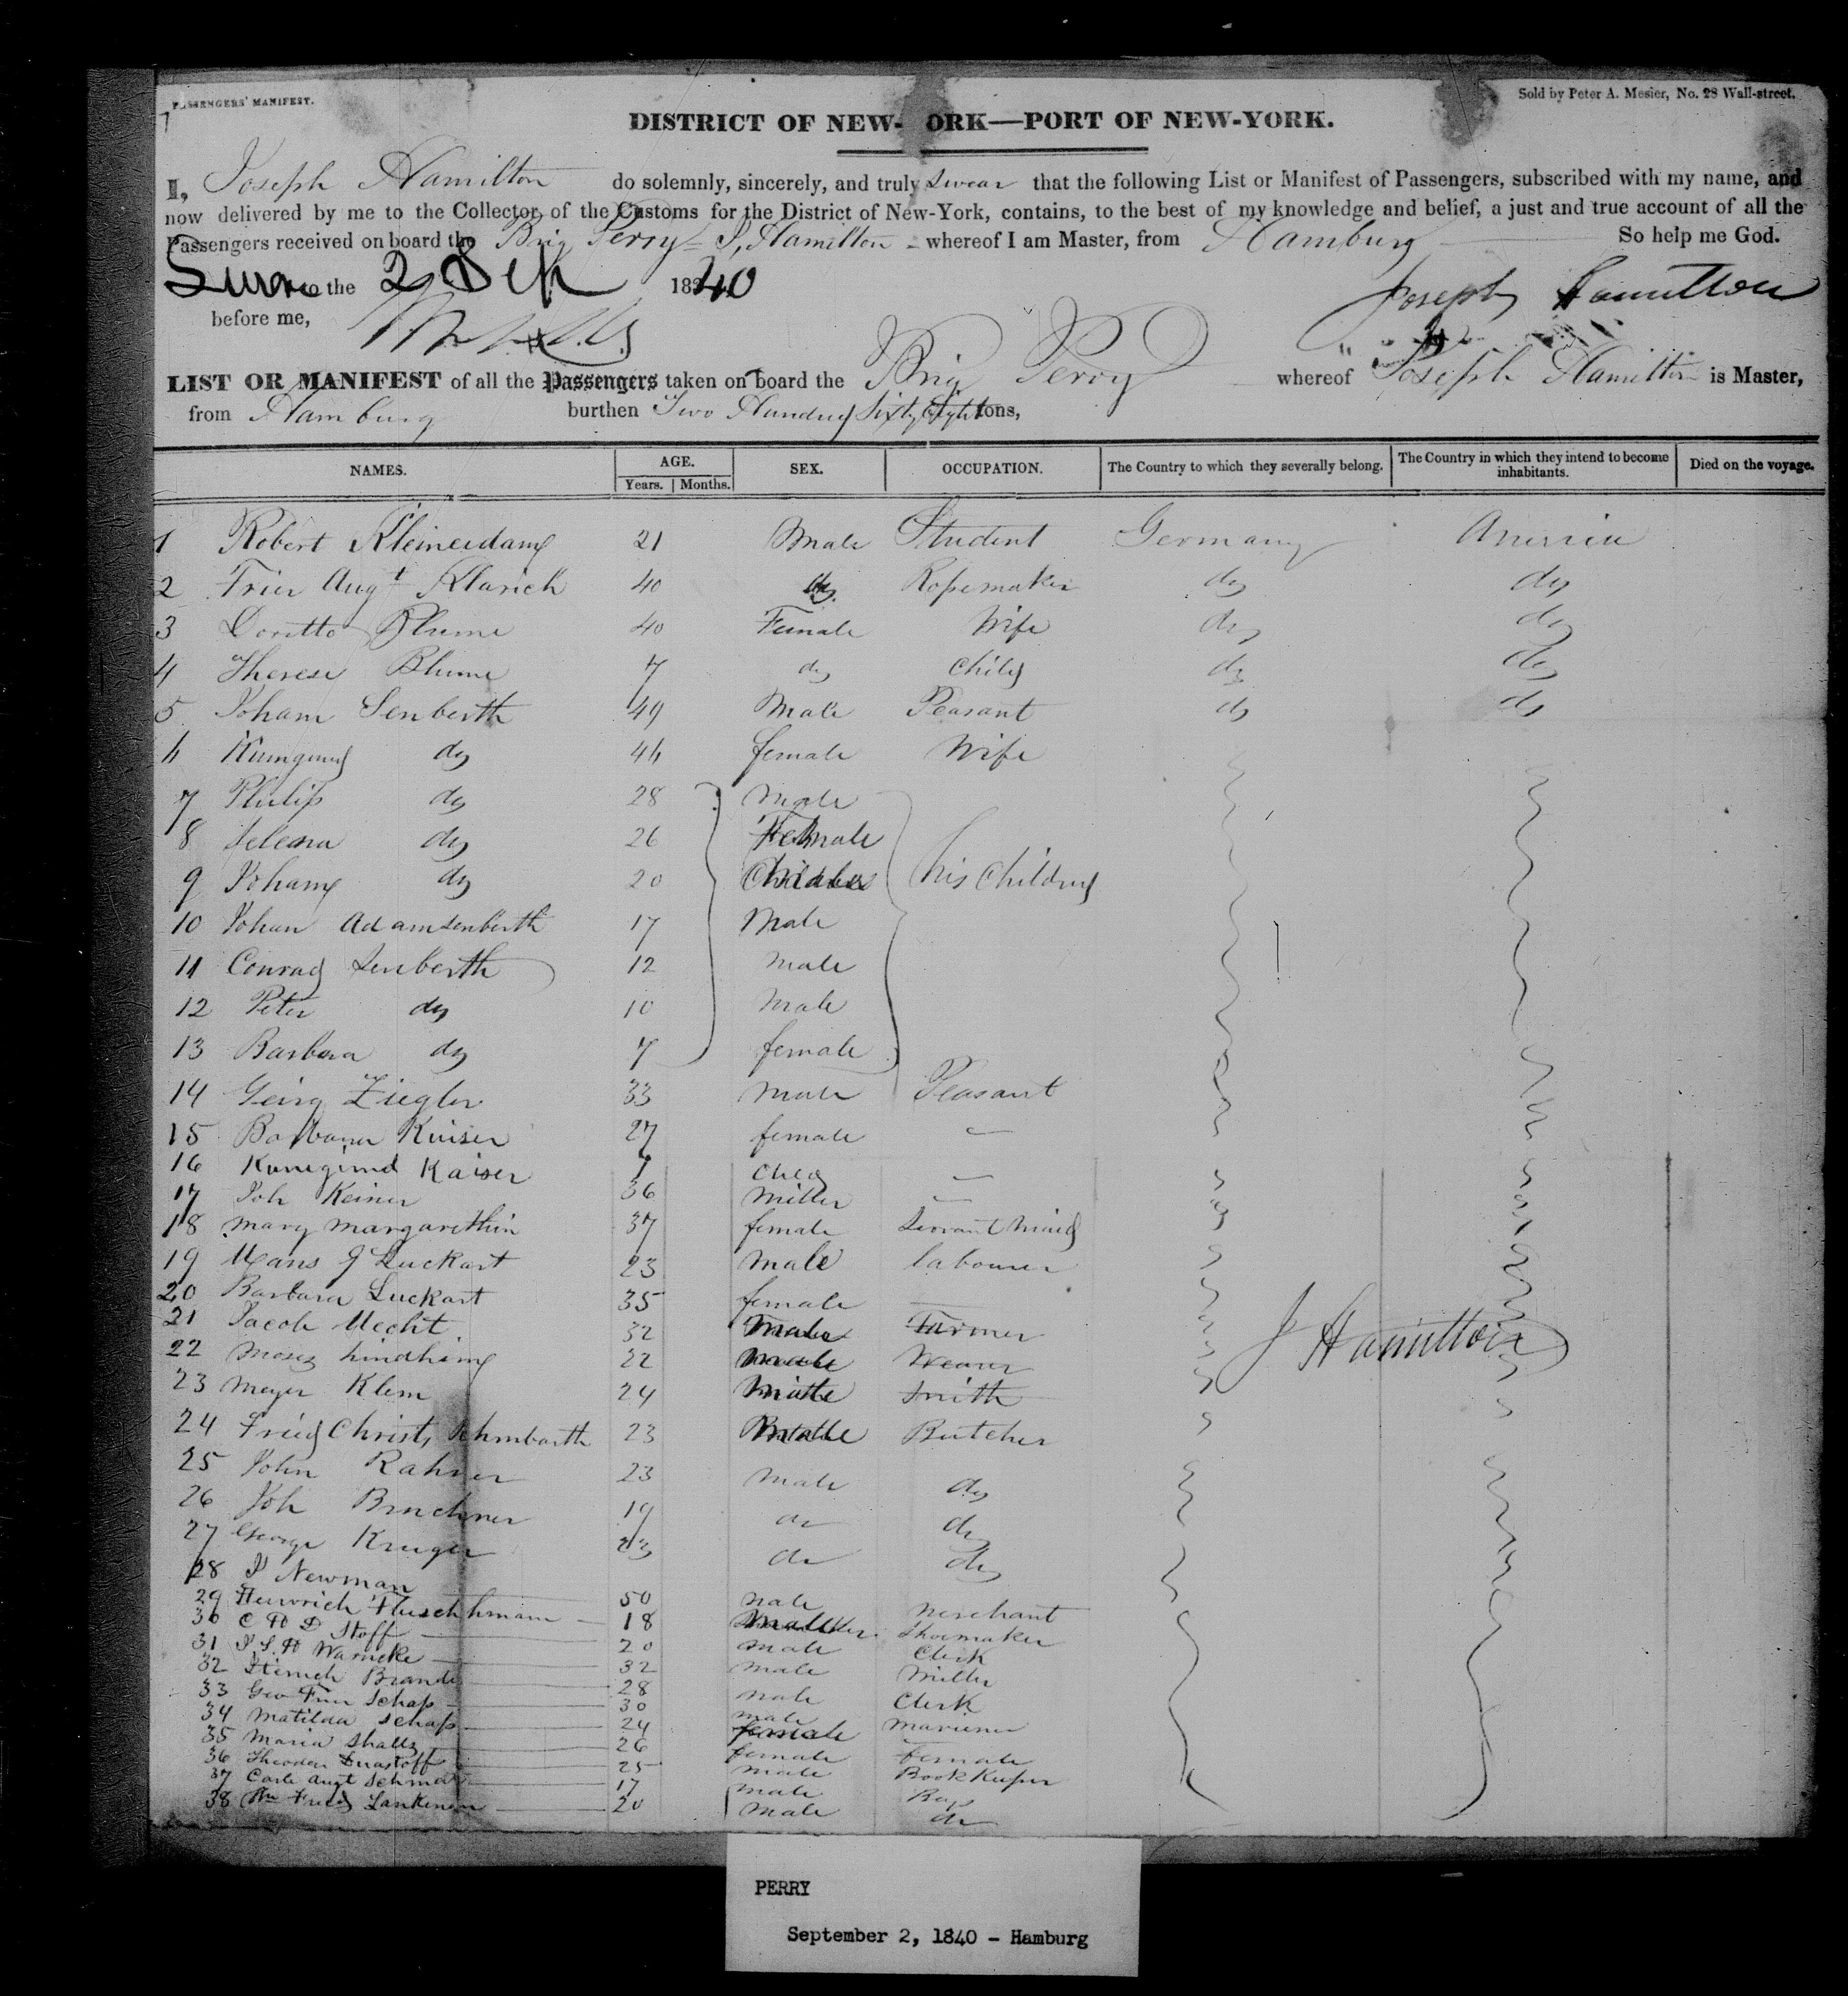 PASSENGERS' MANIFEST.
Sold by Peter A. Mesier, No. 28 Wall-street.
DISTRICT OF NEW- ORK—PORT OF NEW-YORK.
I, Joseph Hamilton do solemnly, sincerely, and truly swear that the following List or Manifest of Passengers, subscribed with my name, and
now delivered by me to the Collector of the Customs for the District of New-York, contains, to the best of my knowledge and belief, a just and true account of all the
Passengers received on board the Brig Perry J. Hamilton whereof I am Master, from Hamburg So help me God.
Sworn to the 2 Sep 1840 Joseph Hamilton
before me,
LIST OR MANIFEST of all the Passengers taken on board the Brig Perry whereof Joseph Hamilton is Master,
from Hamburg burthen Two Hundred Sixty Eight tons,
NAMES. AGE. SEX. OCCUPATION. The Country to which they severally belong. The Country in which they intend to become inhabitants. Died on the voyage.
Years. Months.
1 Robert 21 Male Student Germany America
2 Augt 40 do Ropemaker do do
3 Blume 40 Female Wife do do
4 Therese Blume 7 do Child do do
5 Johann Senberth 49 Male Peasant do do
6 do 46 female Wife
7 Philip do 28 male
8 do 26 Female
9 Johann do 20 his Children
10 Johan Adam Senberth 17 Male
11 Conrad Senberth 12 male
12 Peter do 10 male
13 Barbara do 7 female
14 Georg Ziegler 33 male Peasant
15 Kaiser 27 female
16 Kunegund Kaiser
17 Joh Keiner 36 Miller
18 Mary Margarethin 37 female Servant maid
19 Hans J Luckart 23 male labourer
20 Barbara Luckart 35 female
21 Jacob Hecht 32 male Farmer
22 Moses 22 male Weaver
J Hamilton
23 Meyer Klem 24 male Smith
24 Fried Christ 23 male Butcher
25 John Rahner 23 male do
26 Joh Bruchner 19 do do
27 George Kruger 23 do do
28 J Newman 50 male merchant
29 Heinrich 18 male Shoemaker
30 C H D Stoff 20 male Clerk
31 J. S. H Warncke 32 male Miller
32 Brande 28 male Clerk
33 Geo Schaps 30 male
34 Matilda Schaps 24 female
35 Maria 26 female Female
36 25 male Book Keeper
37 Carl Augt 17 male Boy
38 Wm Fried 20 male do
PERRY
September 2, 1840 - Hamburg